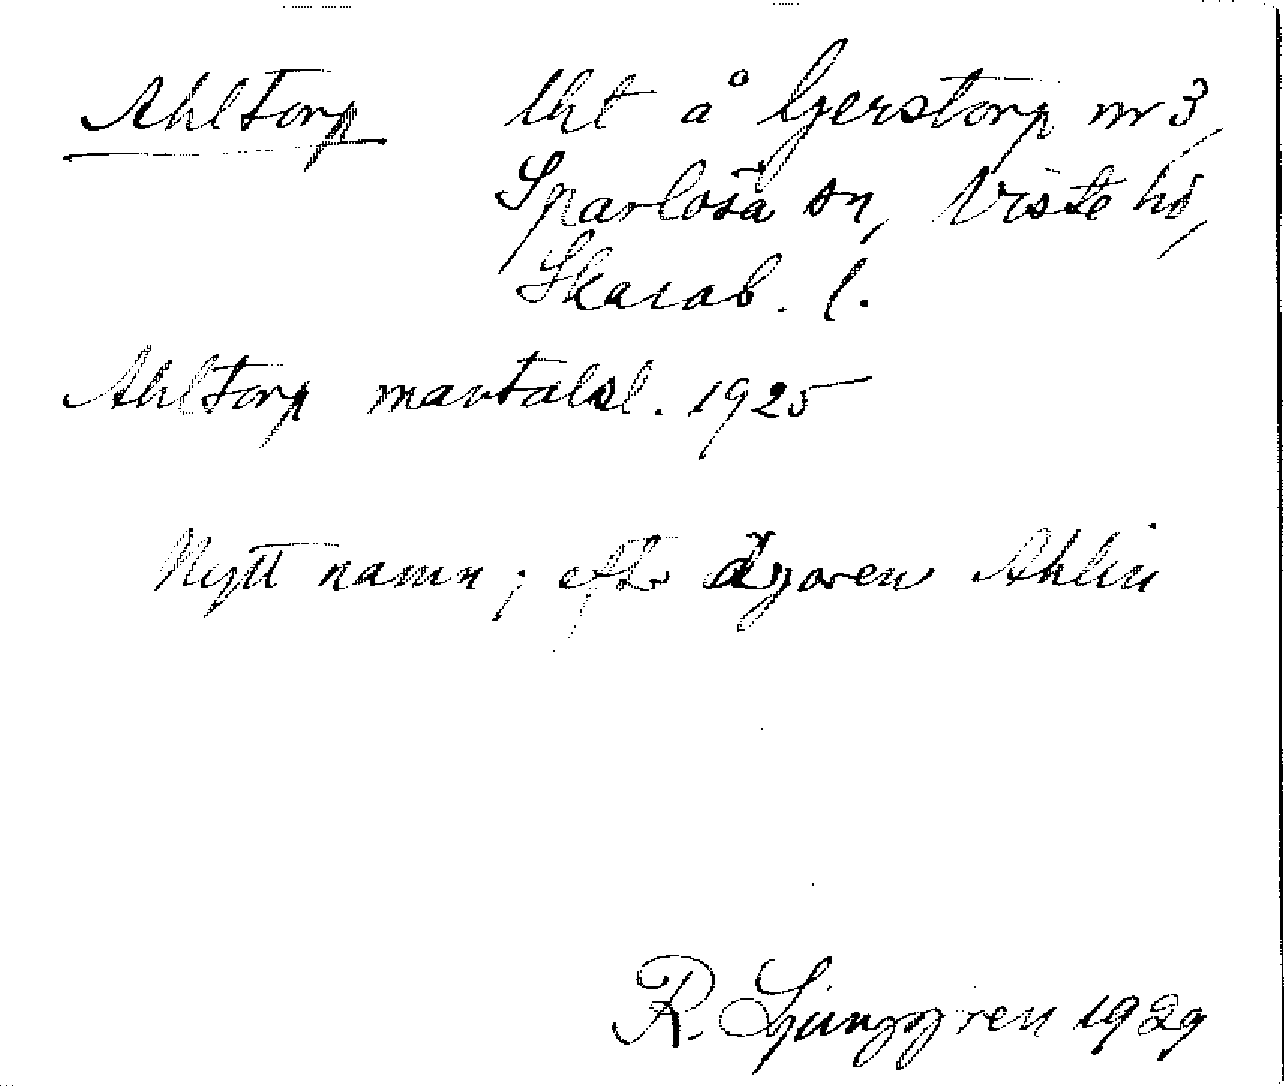 Ahltorp lht å Gerstorp nr 3,
Sparlösa sn, Viste hd,
Skarab. l.
Ahltorp mantalsl. 1925
Nytt namn; eft. ägaren Ahlin
R. Ljunggren 1929